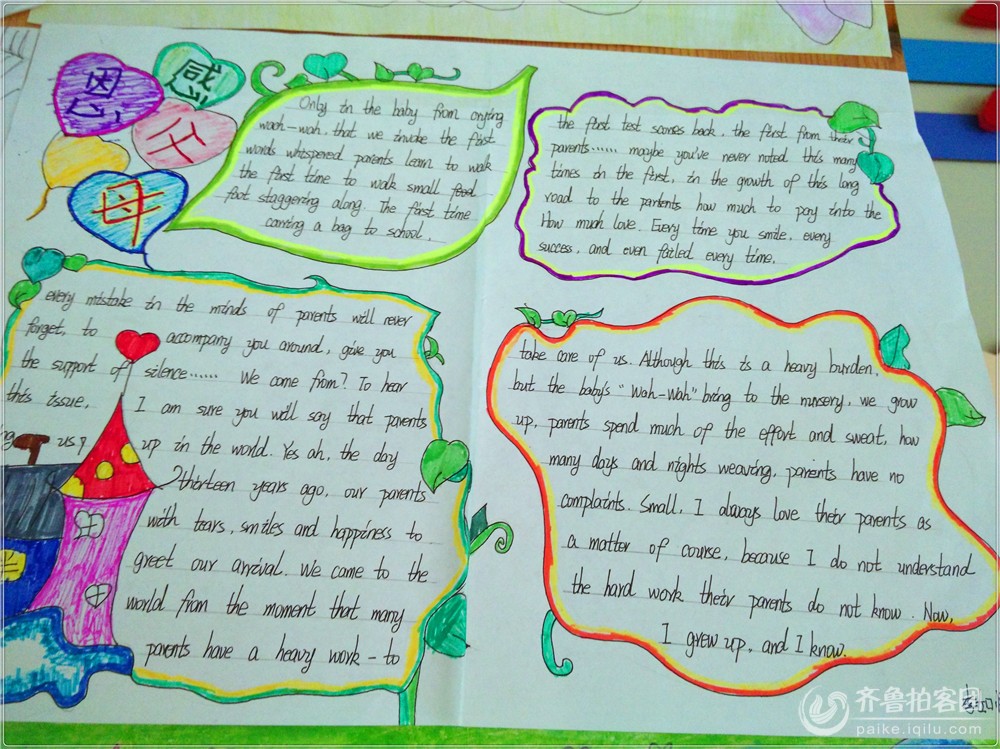 感
恩
父
母
Only in the baby from crying
waah-wah, that we invoke the first
words whispered parents learn to walk
the first time to walk small food
foot staggering along. The first time
carring a bag to school,
the first test scores back, the first from their
parents...... maybe you've never noted this many
times in the first, in the growth of this long
road to the partents how much to pay into the
How much love. Every time you smile, every
success, and even failed every time,
every mistake in the minds of parents will never
forget, to accompany you around, give you
the support of silence...... We come from? To hear
this issue, I am sure you will say that parents
us, up in the world. Yes ah, the day
thirteen years ago, our parents
with tears, smiles and happiness to
greet our arrival. We came to the
world from the moment that many
parents have a heavy work - to
take care of us. Although this is a heavy burden,
but the baby's "Wah-Wah" bring to the nursery, we grow
up, parents spend much of the effort and sweat, how
many days and nights weaving, parients have no
complaints. Small, I always love their parents as
a matter of course, because I do not understand
the hard work their parents do not know. Now,
I grew up, and I know.
齐鲁拍客网
paike.iqilu.com